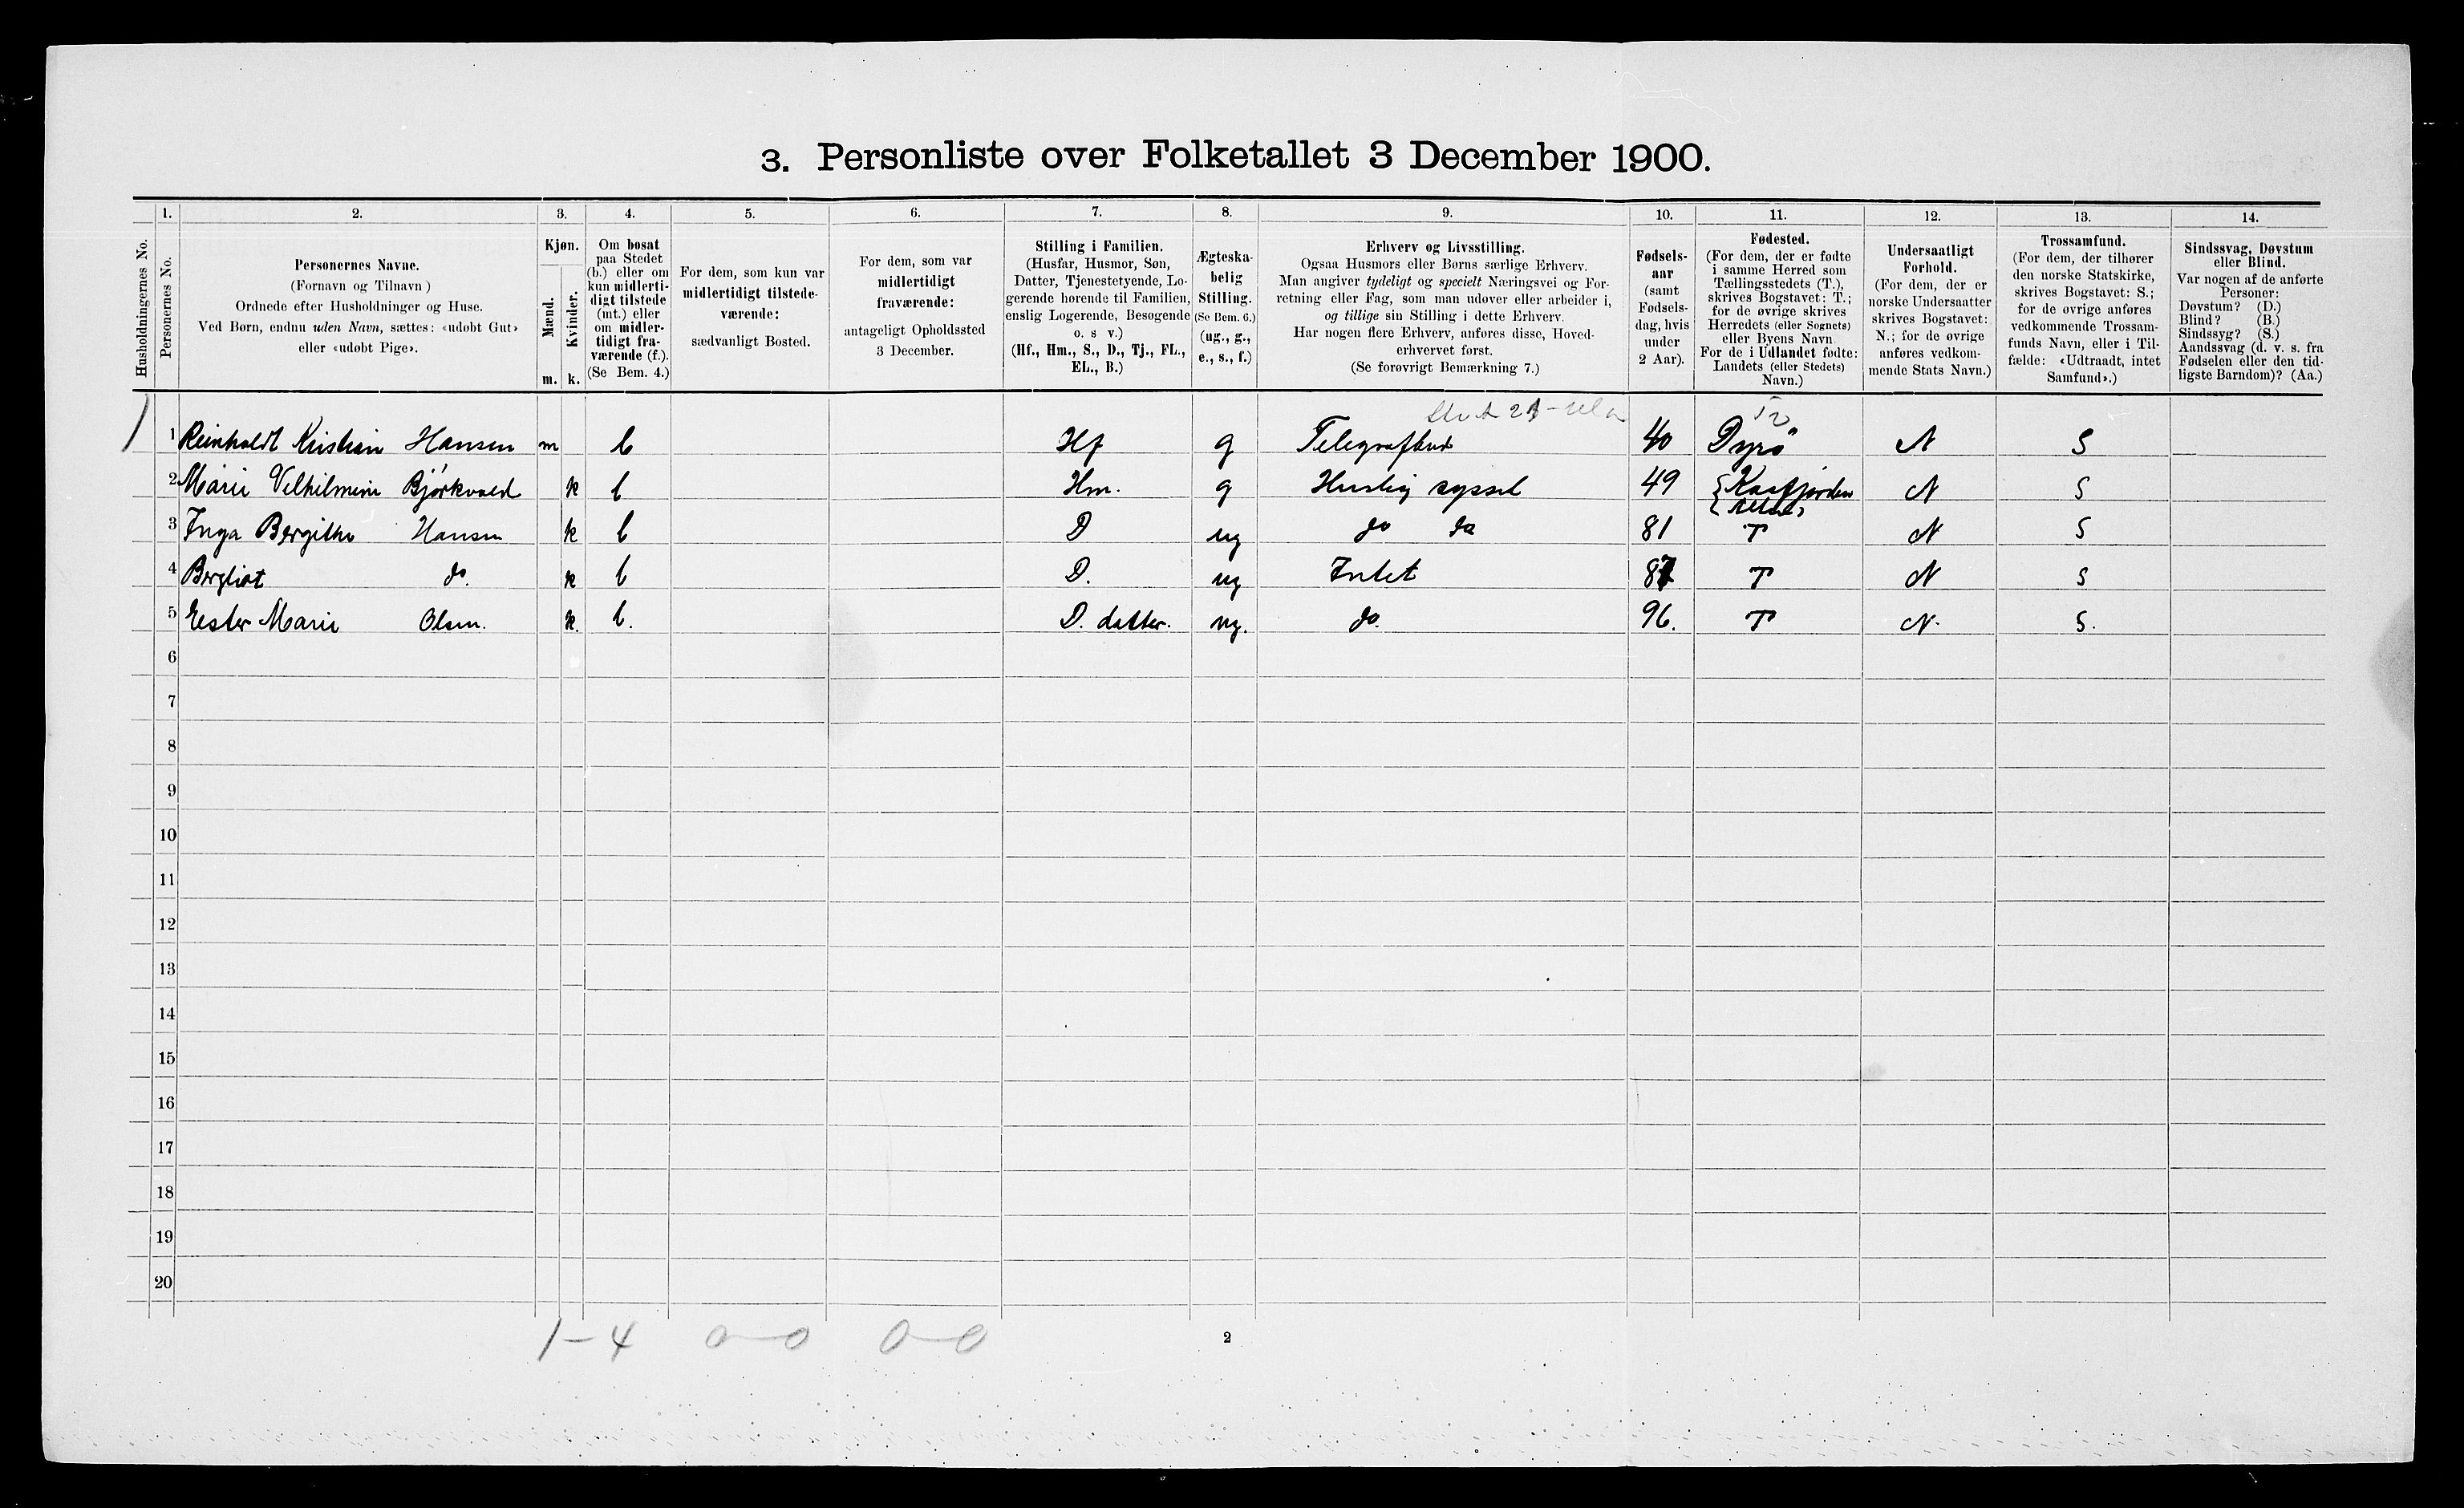 3. Personliste over Folketallet 3 December 1900.
1. 2. 3. 4. 5. 6. 7. 8. 9. 10. 11. 12. 13. 14.
Husholdningernes No.
Personernes No.
Personernes Navne.
(Fornavn og Tilnavn)
Ordnede efter Husholdninger og Huse.
Ved Børn, endnu uden Navn, sættes: «udøbt Gut»
eller «udøbt Pige».
Kjøn.
Mænd.
Kvinder.
m. k.
Om bosat
paa Stedet
(b.) eller om
kun midlerti-
digt tilstede
(mt.) eller
om midler-
tidigt fra-
værende (f.).
(Se Bem. 4.)
For dem, som kun var
midlertidigt tilstede-
værende:
sædvanligt Bosted.
For dem, som var
midlertidigt
fraværende:
antageligt Opholdssted
3 December.
Stilling i Familien.
(Husfar, Husmor, Søn,
Datter, Tjenestetyende, Lo-
gerende hørende til Familien,
enslig Logerende, Besøgende
o. s v.)
(Hf., Hm., S., D., Tj., FL.,
EL., B.)
Ægteska-
belig
Stilling.
(Se Bem. 6.)
(ug., g.,
e., s., f.)
Erhverv og Livsstilling.
Ogsaa Husmors eller Børns særlige Erhverv.
Man angiver tydeligt og specielt Næringsvei og For-
retning eller Fag, som man udøver eller arbeider i,
og tillige sin Stilling i dette Erhverv.
Har nogen flere Erhverv, anføres disse, Hoved-
erhvervet først.
(Se forøvrigt Bemærkning 7.)
Fødsels-
aar
(samt
Fødsels-
dag, hvis
under
2 Aar).
Fødested.
(For dem, der er fødte
i samme Herred som
Tællingsstedets (T.),
skrives Bogstavet: T.;
for de øvrige skrives
Herredets (eller Sognets)
eller Byens Navn.
For de i Udlandet fødte:
Landets (eller Stedets)
Navn.)
Undersaatligt
Forhold.
(For dem, der er
norske Undersaatter
skrives Bogstavet:
N.; for de øvrige
anføres vedkom-
mende Stats Navn.)
Trossamfund.
(For dem, der tilhører
den norske Statskirke,
skrives Bogstavet: S.;
for de øvrige anføres
vedkommende Trossam-
funds Navn, eller i Til-
fælde: «Udtraadt, intet
Samfund».)
Sindssvag, Døvstum
eller Blind.
Var nogen af de anførte
Personer:
Døvstum? (D.)
Blind? (B.)
Sindssyg? (S.)
Aandssvag (d. v. s. fra
Fødselen eller den tid-
ligste Barndom)? (Aa.)
1 1 Reinholdt Kristian Hansen m b Hf g Telegrafbud 40 Dyrö N S
2 Marie Vilhilmine Björkvold k b Hm. g Huslig syssel 49 Kaafjorden N S
3 Inga Bergithe Hansen k b D ug do do 81 T N S
4 Bergliot do. k b D. ug Intet 87 T N S
5 Ester Marie Olsen. k. b. D. datter. ug. do. 96. T N. S.
6
7
8
9
10
11
12
13
14
15
16
17
18
19
20
1-4 0-0 0-0 2